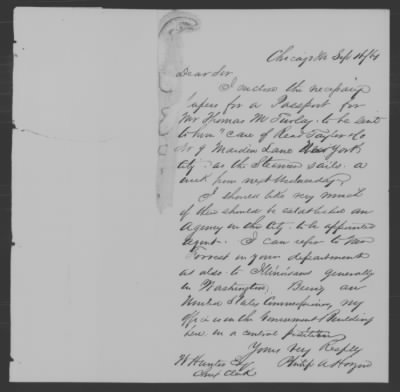 Chicago Ills Sept 16/64
Dear Sir
I enclose the necessary
papers for a Passport for
Mr Thomas M Turlay. to be sent
to him "Care of Reed Taylor & Co
No 9 Maiden Lane New York
City. as the Steamer sails a
week from next Wednesday.
I should like very much
if there should be established an
Agency in this City. to be appointed
agent. I can refer to Mr
in your department
as also to Illinoisans generally
in Washington. Being an
United States Commissioner, my
office is in the Government Building
here in a central position
Yours Very Resply
W Hunter Esq Philip A Hoyne
Chief Clerk